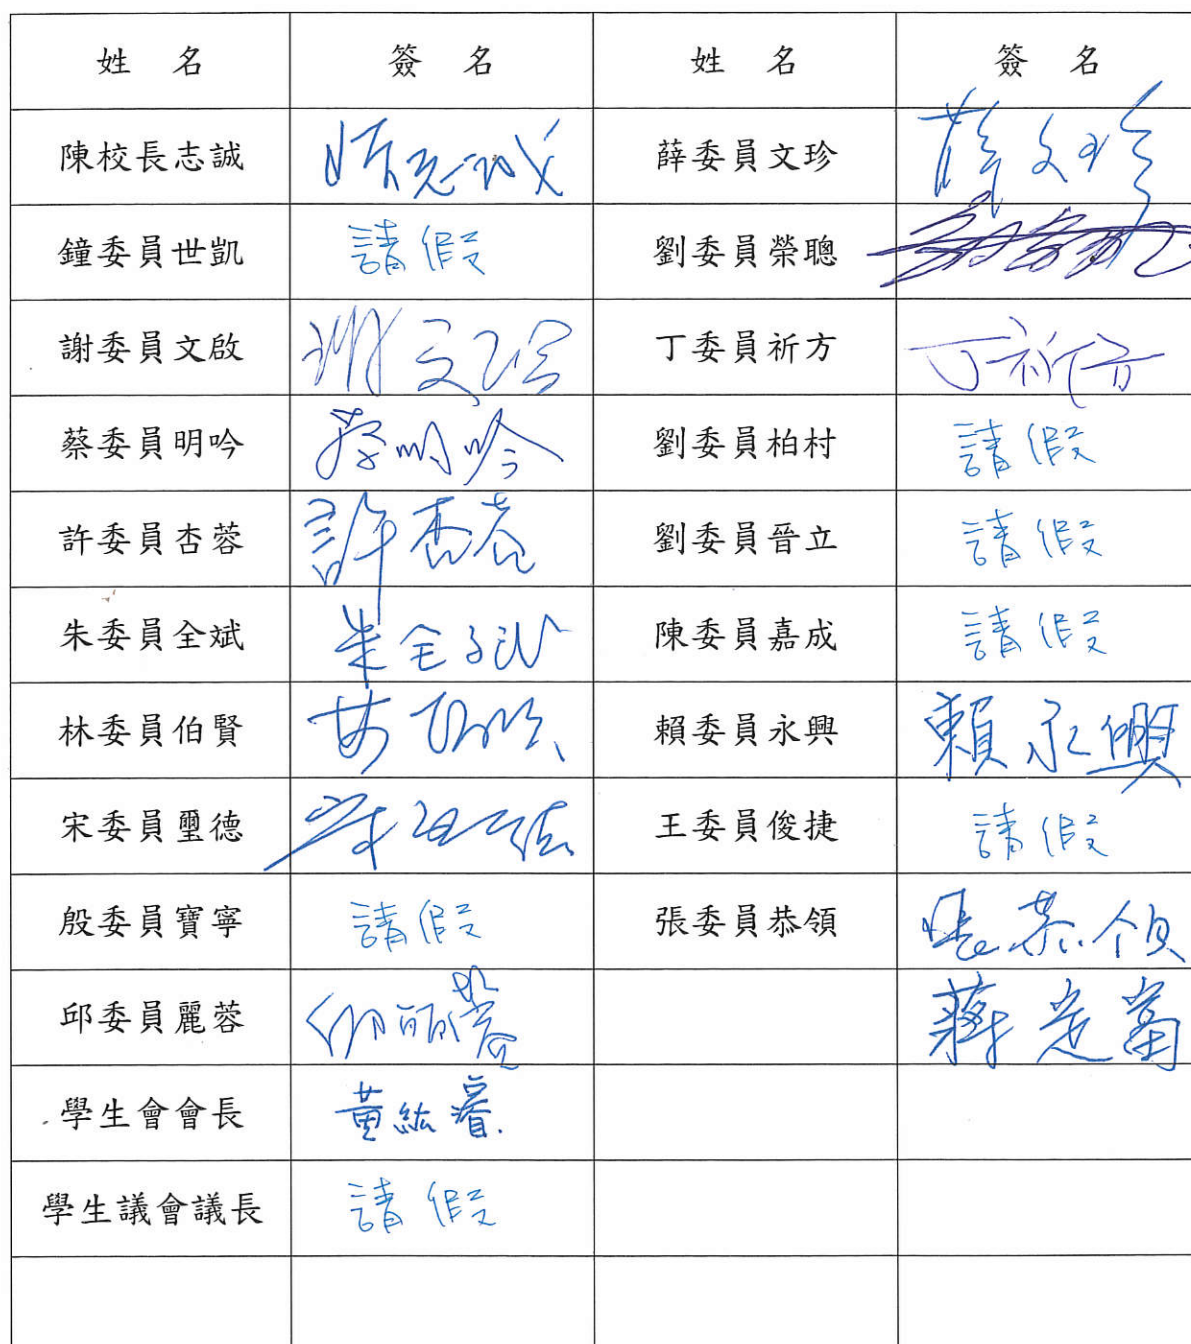 姓 名 簽 名 姓 名 簽 名
陳校長志誠 陳志誠 薛委員文珍 薛文珍
鐘委員世凱 請假 劉委員榮聰
謝委員文啟 謝文啟 丁委員祈方 丁祈方
蔡委員明吟 蔡明吟 劉委員柏村 請假
許委員杏蓉 許杏蓉 劉委員晉立 請假
朱委員全斌 朱全斌 陳委員嘉成 請假
林委員伯賢 賴委員永興 賴永興
宋委員璽德 宋璽德 王委員俊捷 請假
殷委員寶寧 請假 張委員恭領 張恭領
邱委員麗蓉 邱麗蓉 蔣定富
學生會會長 黃紘睿
學生議會議長 請假